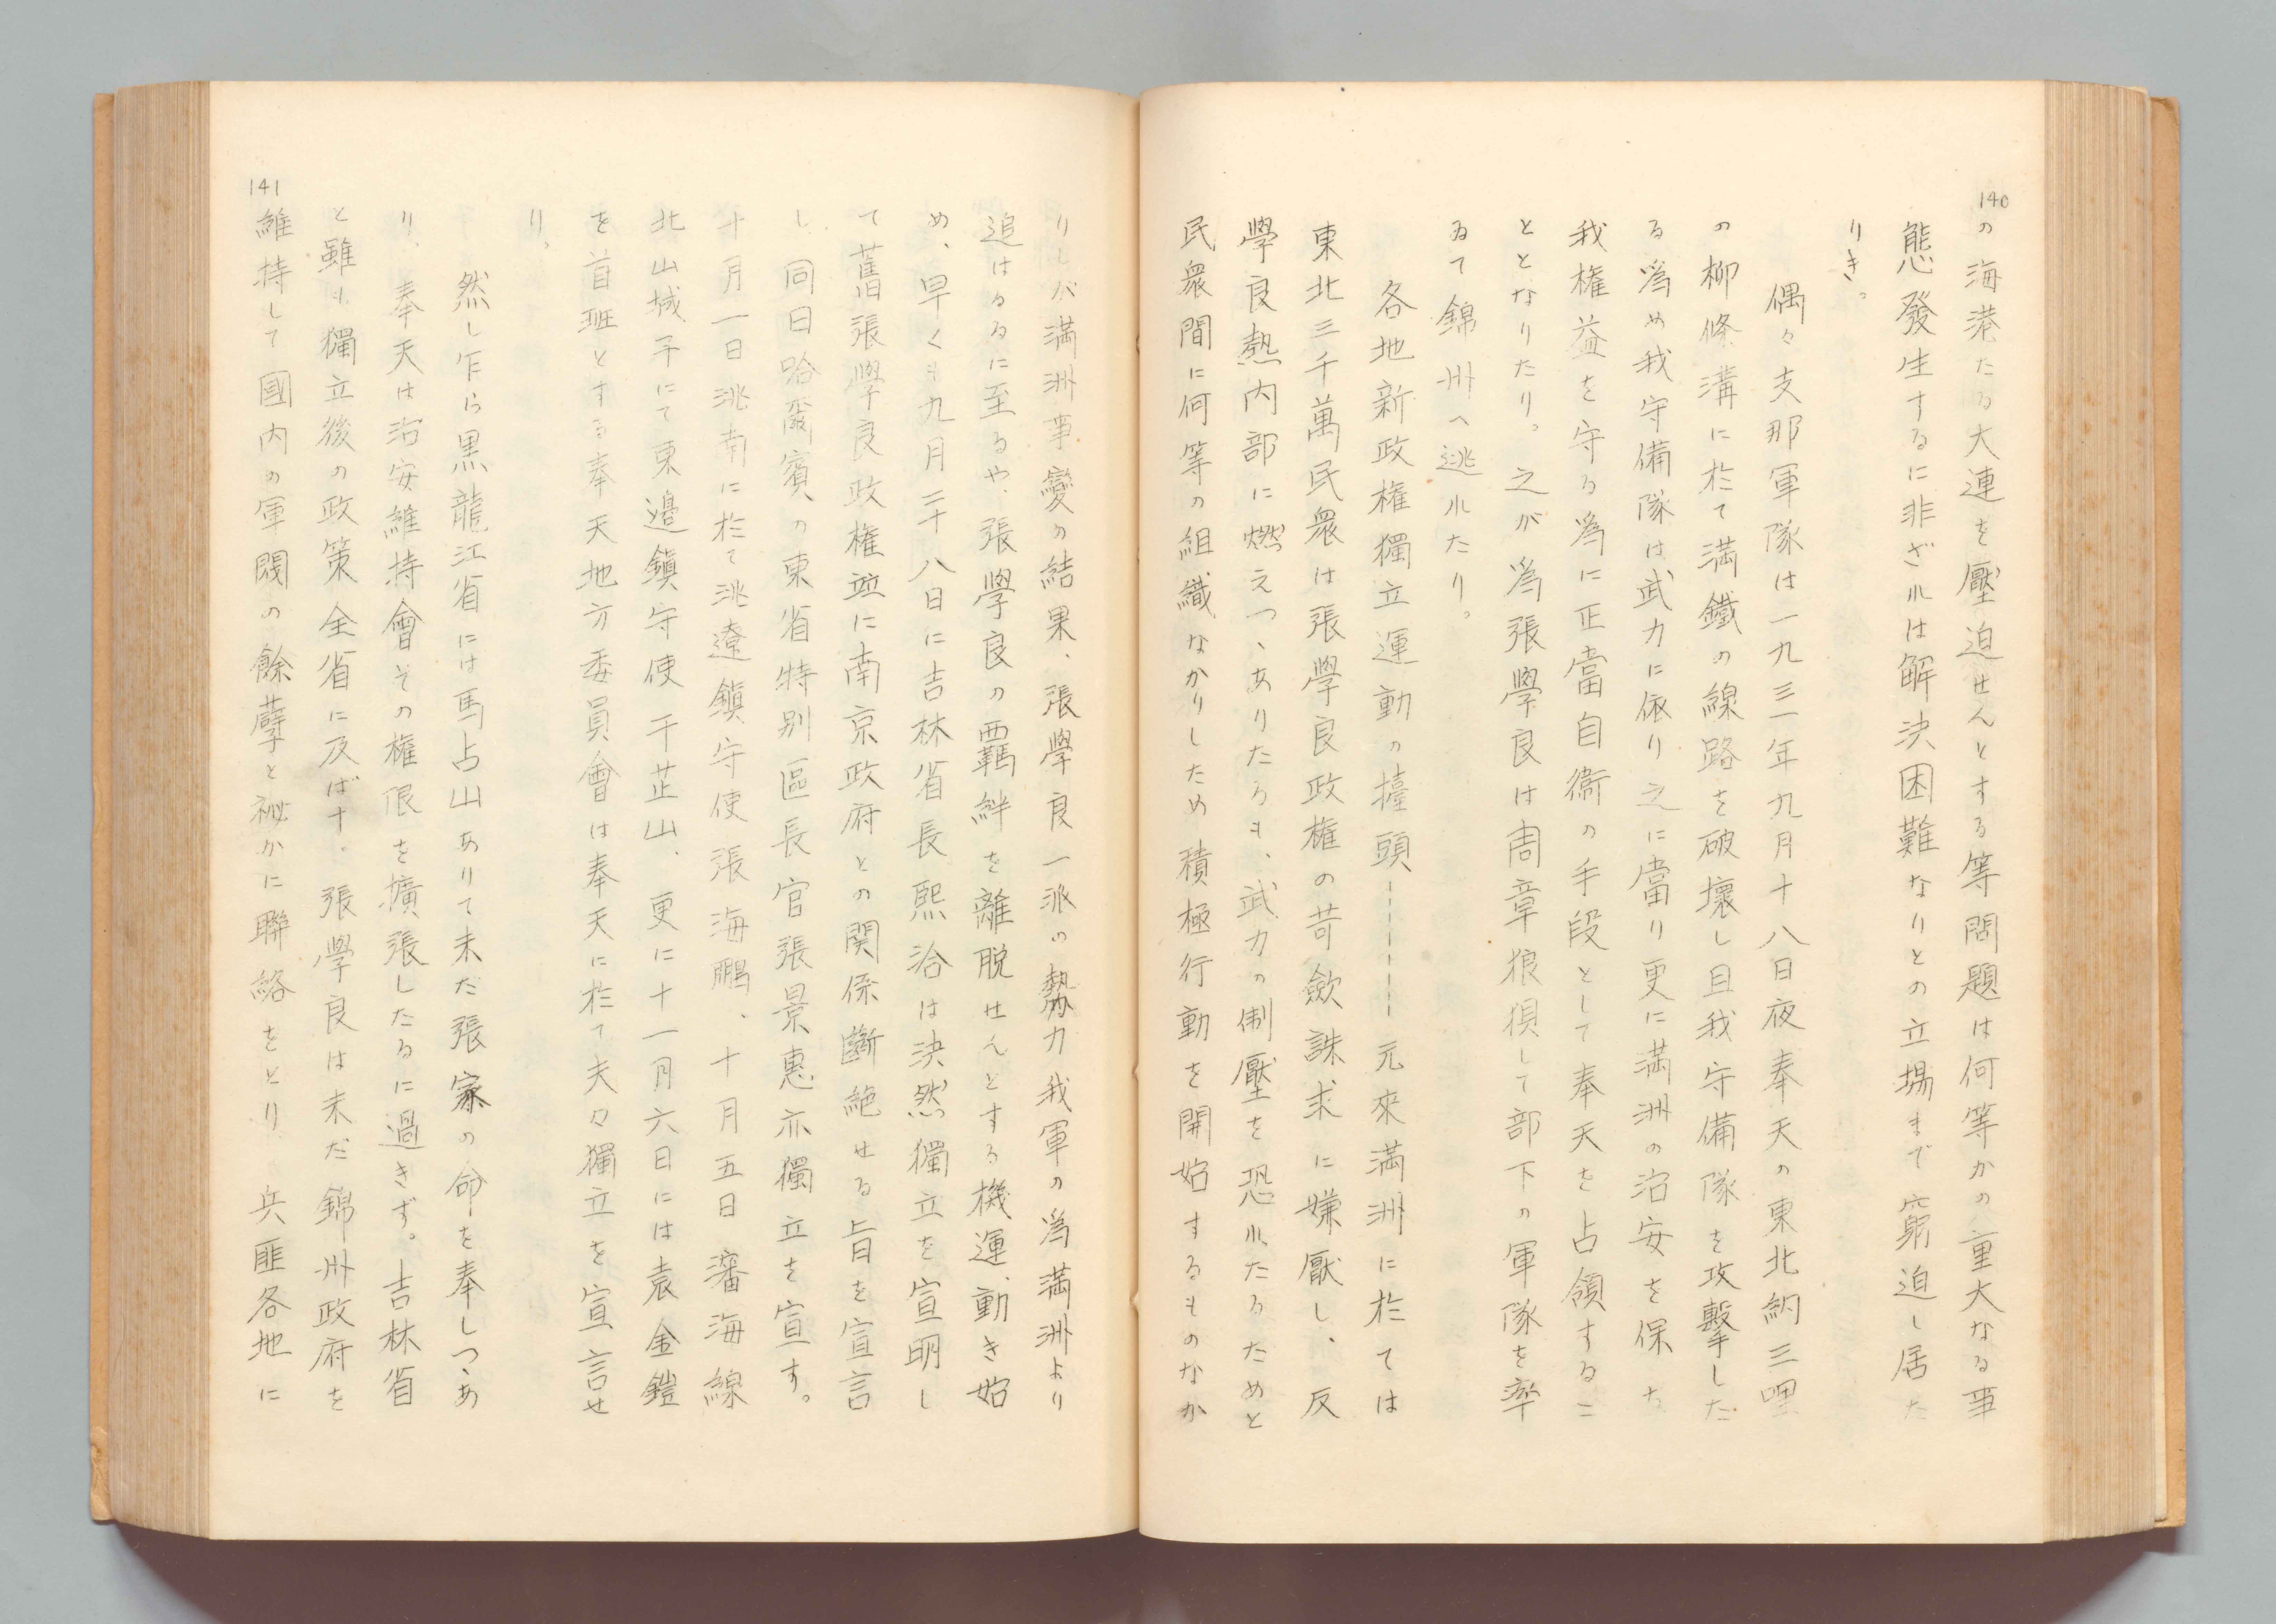 140
の海港たる大連を壓迫せんとする等問題は何等かの重大なる事
態發生するに非ざれは解決困難なりとの立場まで窮迫し居た
りき。
偶々支那軍隊は一九三一年九月十八日夜奉天の東北約三哩
の柳條溝に於て満鐵の線路を破壞し且我守備隊を攻擊した
る爲め我守備隊は武力に依り之に當り更に満洲の治安を保ち
我権益を守る爲に正當自衞の手段として奉天を占領するこ
ととなりたり。之が爲張學良は周章狼狽して部下の軍隊を率
ゐて錦州へ逃れたり。
各地新政権獨立運動の擡頭――――元來満洲に於ては
東北三千萬民衆は張學良政権の苛歛誅求に嫌厭し、反
學良熱内部に燃えつゝありたるも、武力の制壓を恐れたるためと
民衆間に何等の組織なかりしため積極行動を開始するものなか
りしが満洲事變の結果、張學良一派の勢力我軍の爲満洲より
追はるゝに至るや、張學良の覊絆を離脱せんとする機運動き始
め、早くも九月二十八日に吉林省長熙洽は決然獨立を宣明し
て舊張學良政権竝に南京政府との関係斷絶せる旨を宣言
し、同日哈爾賓の東省特別區長官張景惠亦獨立を宣す。
十月一日洮南に於て洮遼鎭守使張海鵬、十月五日瀋海線
北山城子にて東邊鎭守使于芷山、更に十一月六日には袁金鎧
を首班とする奉天地方委員會は奉天に於て夫々獨立を宣言せ
り。
然し乍ら黒龍江省には馬占山ありて未だ張家の命を奉しつゝあ
り、奉天は治安維持會その権限を擴張したるに過きず。吉林省
と雖も獨立後の政策全省に及ばす。張學良は未だ錦州政府を
141
維持して國内の軍閥の餘孽と祕かに聯絡をとり 兵匪各地に